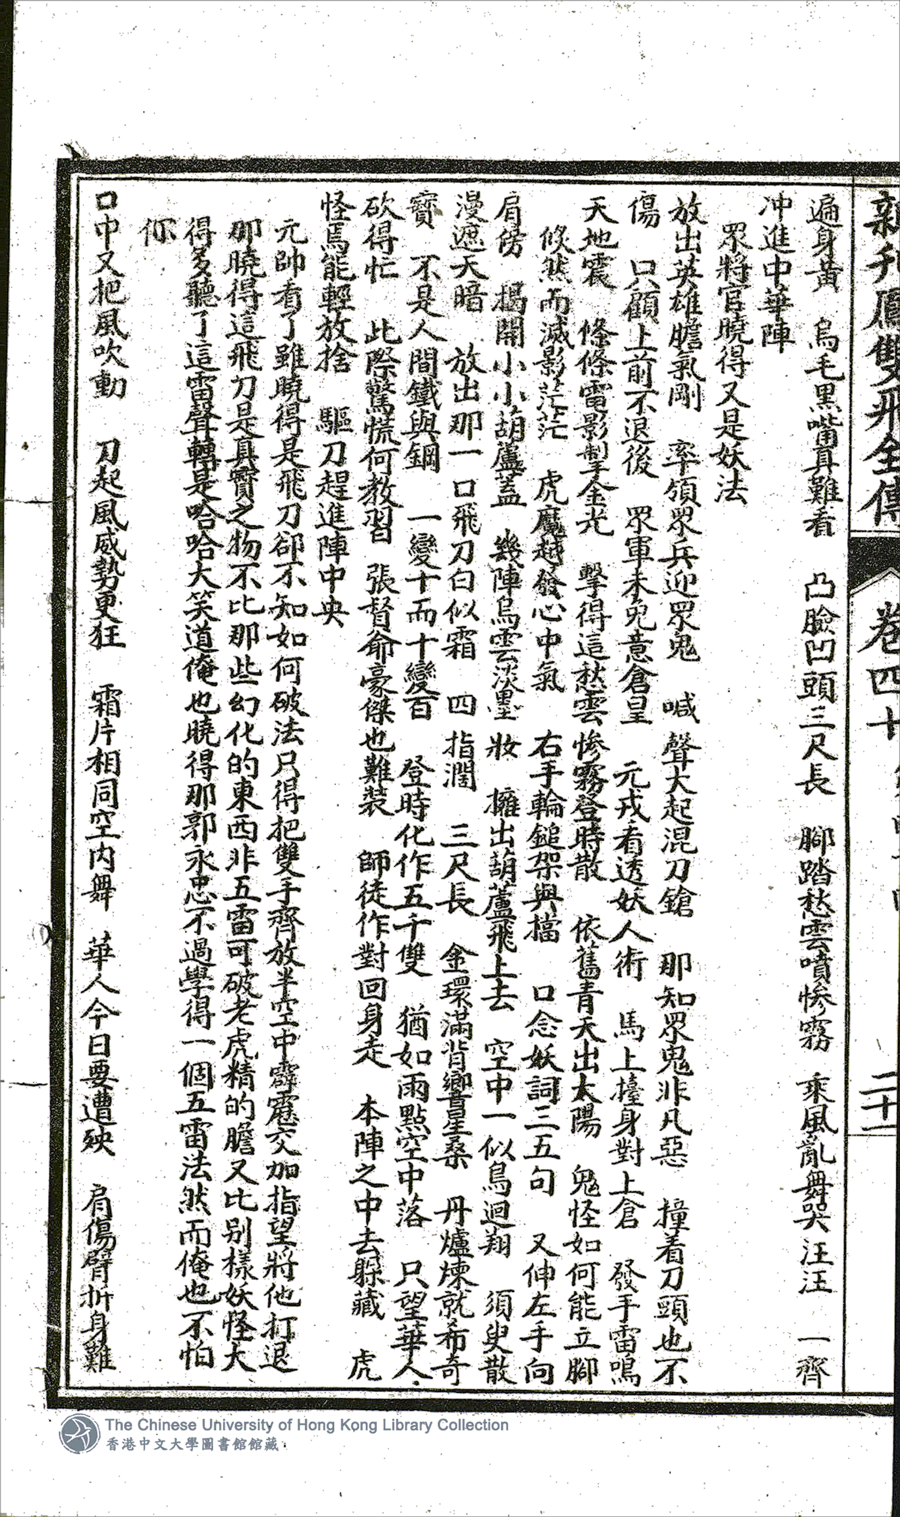 新刊鳳雙飛全傳
卷四十
二十一
遍身黃　烏毛黑嘴真難看　凸臉凹頭三尺長　腳踏愁雲噴惨霧　乘風亂舞哭汪汪　一齊
冲進中華陣
眾將官曉得又是妖法
放出英雄膽氣剛　率領眾兵迎眾鬼　喊聲大起混刀鎗　那知眾鬼非凡惡　撞着刀頭也不
傷　只顧上前不退後　眾軍未免意倉皇　元戎看透妖人術　馬上擡身對上倉　發手雷鳴
天地震　條條電影掣金光　擊得這愁雲惨霧登時散　依舊青天出太陽　鬼怪如何能立腳
倏然而滅影茫茫　虎魔越發心中氣　右手輪鎚架與擋　口念妖詞三五句　又伸左手向
肩傍　揭開小小葫蘆蓋　幾陣烏雲淡墨妝　擁出葫蘆飛上去　空中一似鳥迴翔　須臾散
漫遮天暗　放出那一口飛刀白似霜　四指濶　三尺長　金環滿背響星桑　丹爐煉就希奇
寶　不是人間鐵與鋼　一變十而十變百　登時化作五千雙　猶如雨點空中落　只望華人
砍得忙　此際驚慌何教習　張督爺豪傑也難裝　師徒作對回身走　本陣之中去躲藏　虎
怪焉能輕放捨　驅刀趕進陣中央
元帥看了雖曉得是飛刀卻不知如何破法只得把雙手齊放半空中霹靂交加指望將他打退
那曉得這飛刀是真寶之物不比那些幻化的東西非五雷可破老虎精的膽又比别樣妖怪大
得多聽了這雷聲轉是哈哈大笑道俺也曉得那郭永忠不過學得一個五雷法然而俺也不怕
你
口中又把風吹動　刀起風威勢更狂　霜片相同空内舞　華人今日要遭殃　肩傷臂折身難
The Chinese University of Hong Kong Library Collection
香港中文大學圖書館館藏